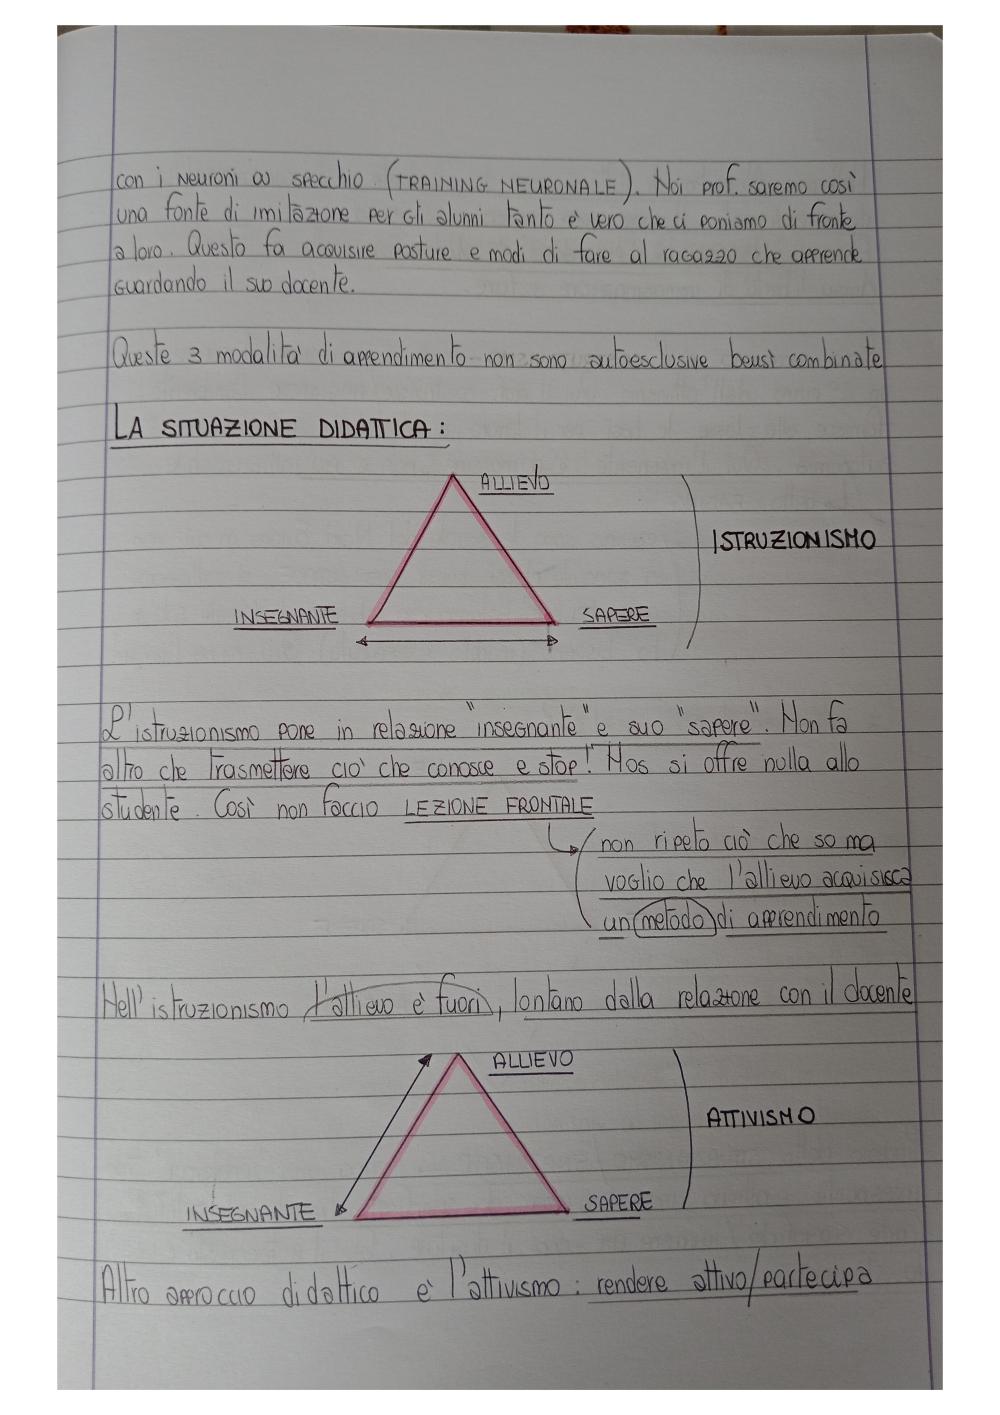 con i NeuroNi a specchio (TRAINING NEURONALE). Noi prof. saremo così
una fonte di imitazione per gli alunni tanto è vero che ci poniamo di fronte
a loro. Questo fa acquisire posture e modi di fare al ragazzo che apprende
guardando il suo docente.
Queste 3 modalità di apprendimento non sono autoesclusive bensì combinate
LA SITUAZIONE DIDATTICA:
ALLIEVO
ISTRUZIONISMO
INSEGNANTE
SAPERE
L'istruzionismo pone in relazione "insegnante" e suo "sapere". Non fa
altro che trasmettere ciò che conosce e stop! Nos si offre nulla allo
studente. Così non faccio LEZIONE FRONTALE
non ripeto ciò che so ma
voglio che l'allievo acquisisca
un metodo di apprendimento
Nell'istruzionismo l'allievo è fuori, lontano dalla relazione con il docente
ALLIEVO
ATTIVISMO
INSEGNANTE
SAPERE
Altro approccio didattico è l'attivismo: rendere attivo/partecipa